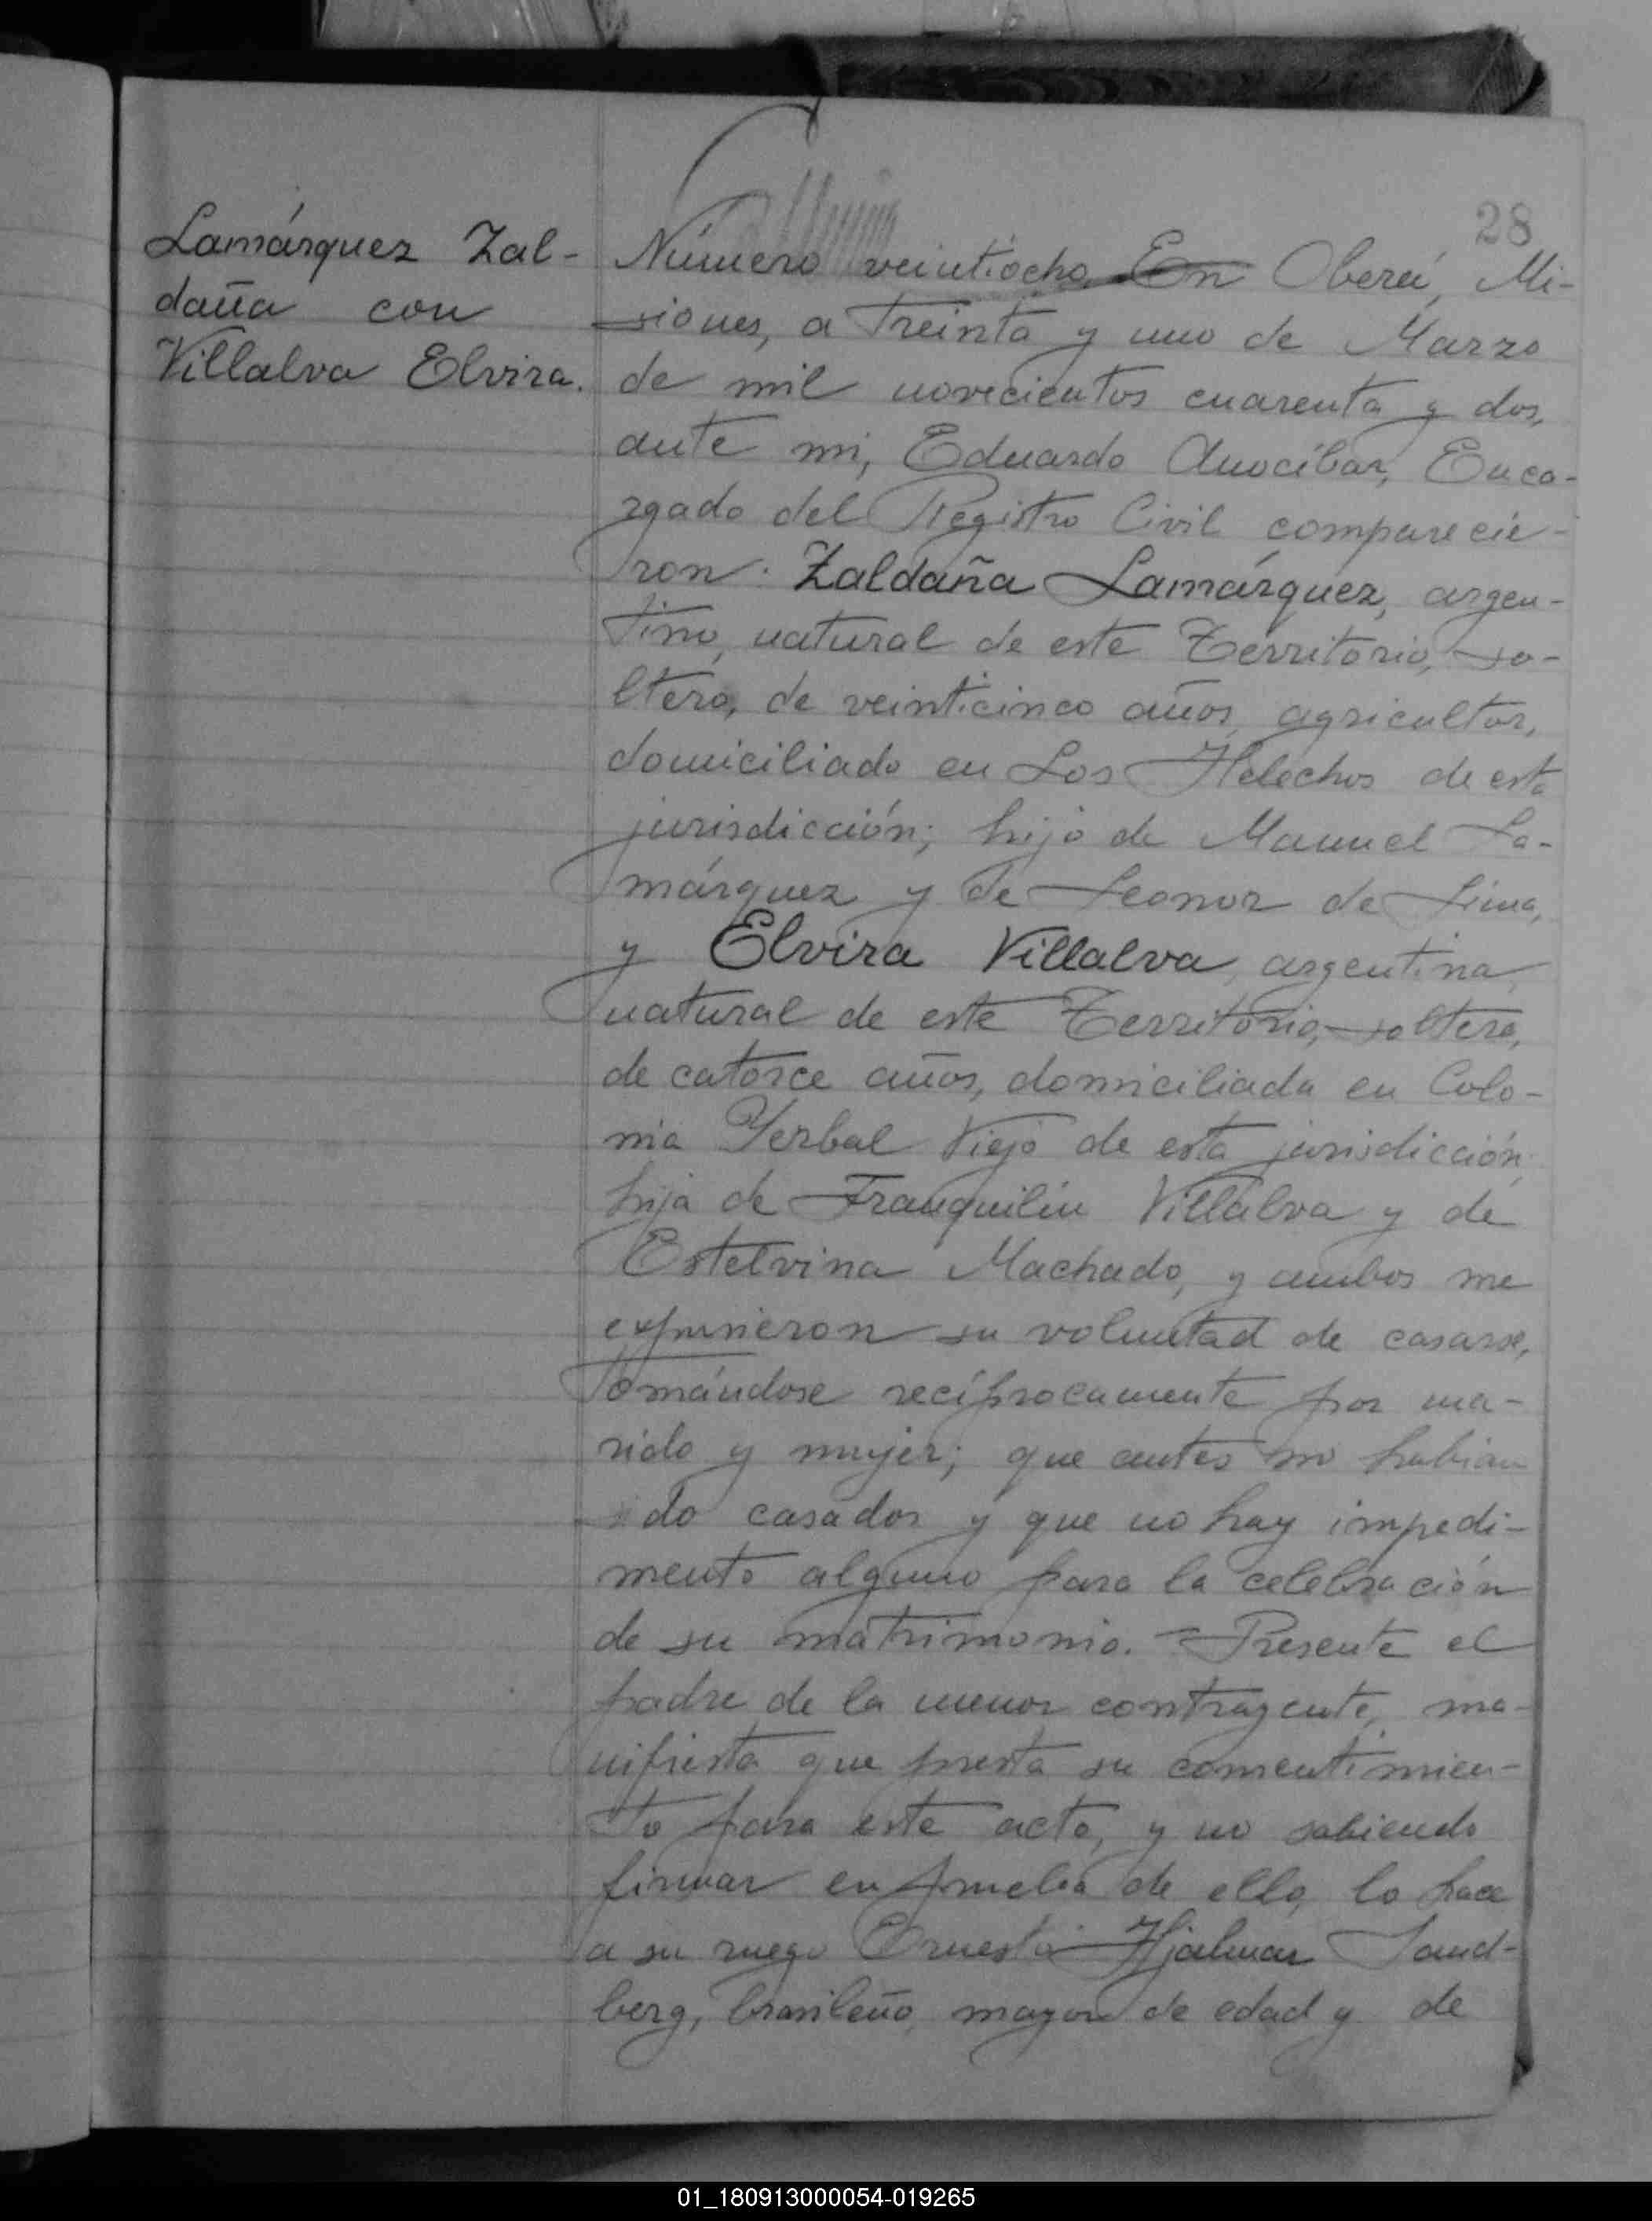 28
Lamárquez Zal-
daña con
Villalva Elvira.
Número veintiocho En Oberá, Mi-
siones, a treinta y uno de Marzo
de mil novecientos cuarenta y dos,
ante mi, Eduardo Anocíbar, Enca-
rgado del Registro Civil comparecie-
ron: Zaldaña Lamárquez, argen-
tino, natural de este Territorio, so-
ltero, de veinticinco años, agricultor,
domiciliado en Los Helechos de esta
jurisdicción; hijo de Manuel La-
márquez y de Leonor de Lima,
y Elvira Villalva, argentina,
natural de este Territorio, soltera,
de catorce años, domiciliada en Colo-
nia Yerbal Viejo de esta jurisdicción,
hija de Franquilin Villalva y de
Estelvina Machado, y ambos me
expusieron su voluntad de casarse,
tomándose recíprocamente por ma-
rido y mujer; que antes no habian
sido casados y que no hay impedi-
mento alguno para la celebración
de su matrimonio. = Presente el
padre de la menor contrayente, ma-
nifiesta que presta su consentimien-
to para este acto, y no sabiendo
firmar en prueba de ello, lo hace
a su ruego Ernesto Hjalmar Sand-
berg, brasileño, mayor de edad y de
01_180913000054-019265